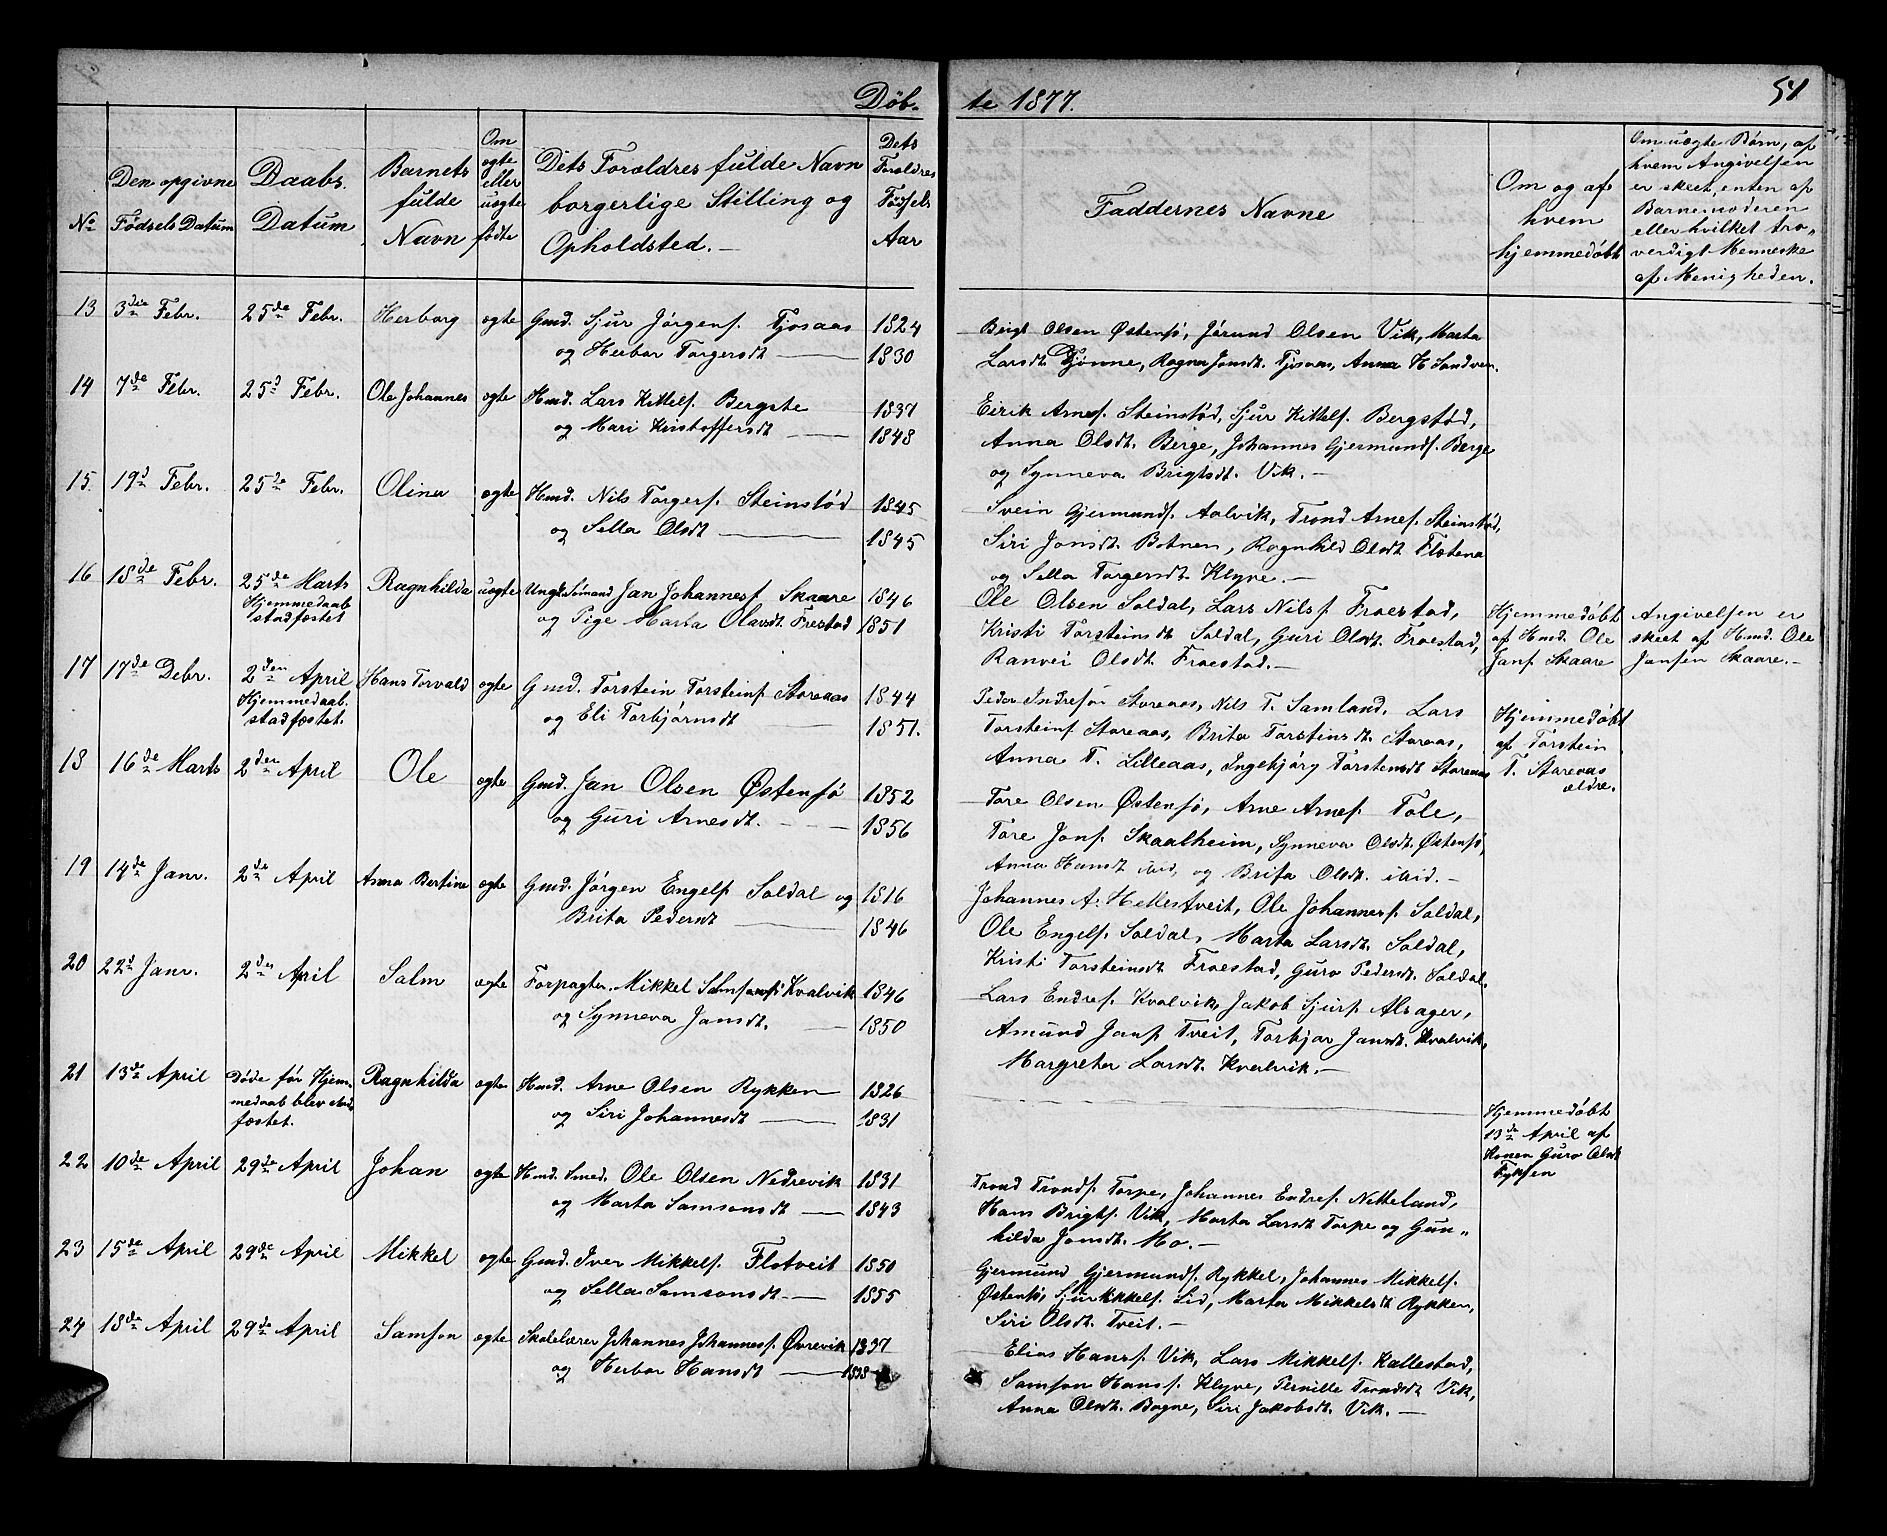 Döb-
te 1877.
54
No
Den opgivne
Fødsels Datum
Daabs.
Datum
Barnets
fulde
Navn
Om
ægte
eller
uægte
fødte
Dets Forældres fulde Navn
borgerlige Stilling og
Opholdsted. —
Dets
Forældres
Føsels
Aar
Faddernes Navne
Om og af
hvem
hjemmedøbt
Om uægte Børn, af
hvem Angivelsen
er skeet, enten af
Barnemoderen
eller hvilket tro-
verdigt Menneske
af Menigheden.
13 3die Febr. 25de Febr. Herborg ægte Gmd. Sjur Jørgens. Tjosaas 1824
og Herbor Torgersdt — 1830
Brigt Olsen Østensø, Jørund Olsen Vik, Marta
Larsdt. Tjønne, Ragna Jonsdt. Tjosaas, Anna H. Sandven.
14 7de Febr. 25d Febr. Ole Johannes ægte Hmd. Lars Kittels. Bergstø 1837
og Mari Kristoffersdt — 1848
Eirik Arnes. Steinstød, Sjur Kittels. Bergstød,
Anna Olsdt. Berge, Johannes Gjermunds. Berge
og Synneva Brigtsdt. Vik. —
15. 19d Febr. 25de Febr. Olina ægte Hmd. Nils Torgers. Steinstød 1845
og Sella Olsdt — 1845
Svein Gjermunds. Aalvik, Trond Arnes. Steinstød,
Siri Jonsdt. Botnen, Ragnhild Olsdt Flotena
og Sella Torgersdt. Klyve. —
16 18de Febr. 25de Marts Ragnhilda uægte Ungk. Sømand Jan Johanness. Skaare 1846
Hjemmedaab
stadfæstet
og Pige Marta Olavsdt. Frøstad 1851
Ole Olsen Soldal, Lars Nilss. Froestad,
Kristi Torsteinsdt Soldal, Guri Olsdt. Froestad,
Ranvei Olsdt. Froestad. —
Hjemmedøbt
af Hmd. Ole
Jans. Skaare
Angivelsen er
skeet af Hmd. Ole
Jansen Skaare. —
17 17de Debr. 2den April Hans Torvald ægte Gmd. Torstein Torsteins. Storeaas 1844
Hjemmedaab.
stadfæstet.
og Eli Torbjørnsdt — 1851.
Peder Indresøn Storeaas, Nils T. Samland, Lars
Torsteins. Storeaas, Brita Torsteinsdt. Storaas,
Anna T. Lilleaas, Ingebjørg Torsteinsdt Storeaas
Hjemmedøbt
af Torstein
T. Storeaas
ældre.
18 16de Marts 2den April Ole ægte Gmd. Jan Olsen Østensø 1852
og Guri Arnesdt. — 1856
Tore Olsen Østensø, Arne Arnes. Tole,
Tore Jons. Skaalheim, Synneva Olsdt. Østensø,
Anna Hansdt ibid, og Brita Olsdt. ibid. —
19 14de Janr. 2de April Anna Bertine ægte Gmd. Jørgen Engels. Soldal og 1816
Brita Pedersdt — 1846
Johannes A. Hellestveit, Ole Johanness. Soldal,
Ole Engels. Soldal, Marta Larsdt. Soldal,
Kristi Torsteinsdt Froestad, Guro Pedersdt. Soldal.
20 22d Janr. 2den April Salm ægte Forpagter. Mikkel Samsons. Kvalvik 1846
og Synneva Jansdt. — 1850
Lars Endres. Kvalvik, Jakob Sjurs. Alsager,
Amund Jans. Tveit, Torbjør Jansdt. Kvalvik,
Margreta Larsdt. Kvalvik. —
21 13de April Døde før Hjem- Ragnhilda ægte Hmd. Arne Olsen Rykken 1826
medaab blev stad
fæstet.
og Siri Johannesdt — 1831
Hjemmedøbt
13de April af
Konen Guro Olsdt
Fyksen
22 10de April 29de April Johan ægte Hmd. Smed. Ole Olsen Nedrevik 1831
og Marta Samsonsdt — 1843
Trond Tronds. Torpe, Johannes Endres. Netteland,
Hans Brigts. Vik, Marta Larsdt Torpe og Gun-
hilda Jonsdt. Mo. —
23 15de April 29de April Mikkel ægte Gmd. Iver Mikkels. Flotveit 1850
og Sella Samsonsdt. — 1855
Gjermund Gjermunds. Rykkel, Johannes Mikkels.
Østensø, Sjur Mikkels. Lid, Marta Mikkelsdt Rykken,
Siri Olsdt. Tveit. —
24 18de April 29de April Samson ægte Skolelærer Johannes Johanness. Øvrevik 1837
og Herbor Hansdt — 1838
Elias Hans. Vik, Lars Mikkels. Kallestad,
Samson Hans. Klyve, Pernille Trondsdt Vik,
Anna Olsdt. Bogne, Siri Jakobsdt. Vik. —